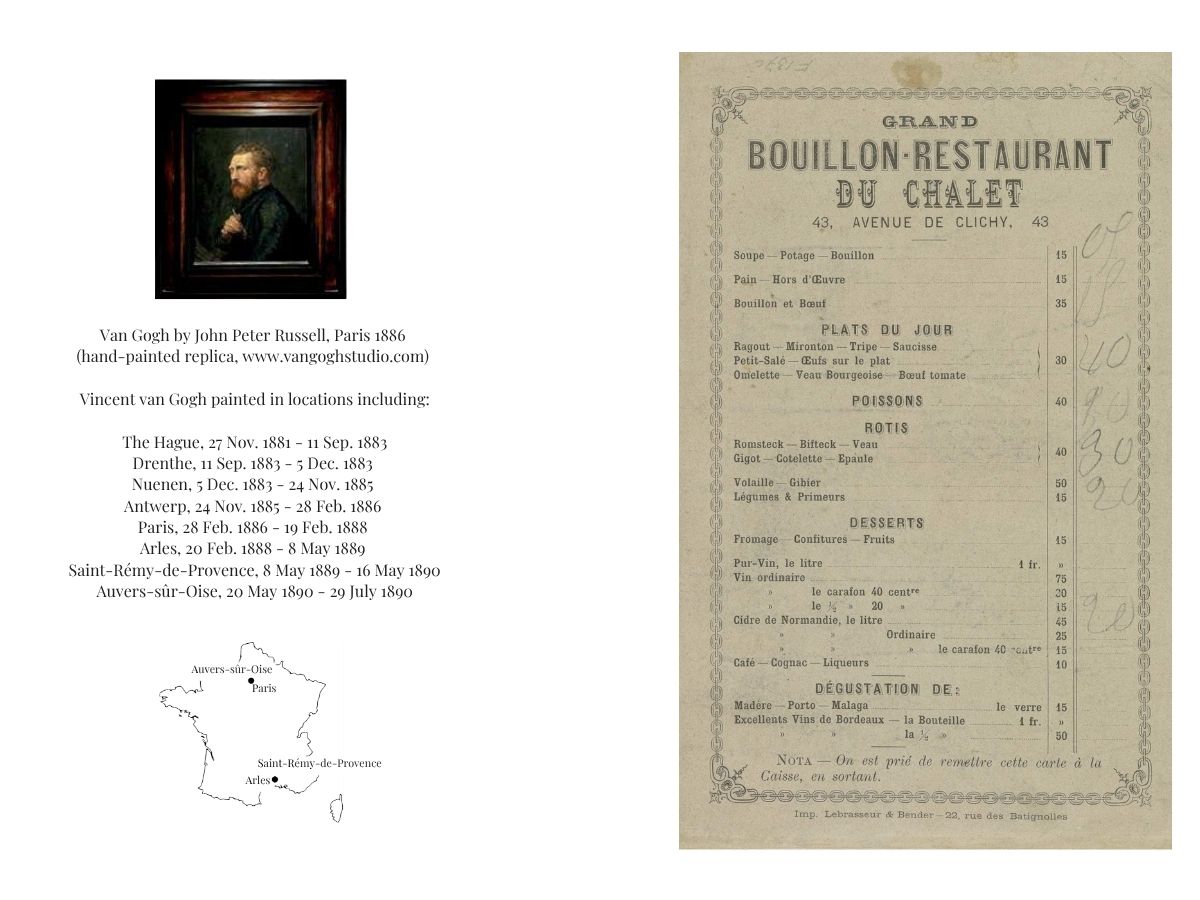 Van Gogh by John Peter Russell, Paris 1886
(hand-painted replica, www.vangoghstudio.com)
Vincent van Gogh painted in locations including:
The Hague, 27 Nov. 1881 - 11 Sep. 1883
Drenthe, 11 Sep. 1883 - 5 Dec. 1883
Nuenen, 5 Dec. 1883 - 24 Nov. 1885
Antwerp, 24 Nov. 1885 - 28 Feb. 1886
Paris, 28 Feb. 1886 - 19 Feb. 1888
Arles, 20 Feb. 1888 - 8 May 1889
Saint-Rémy-de-Provence, 8 May 1889 - 16 May 1890
Auvers-sûr-Oise, 20 May 1890 - 29 July 1890
Auvers-sûr-Oise
Paris
Saint-Rémy-de-Provence
Arles
GRAND
BOUILLON-RESTAURANT
DU CHALET
43, AVENUE DE CLICHY, 43
Soupe — Potage — Bouillon 15
Pain — Hors d'Œuvre 15
Bouillon et Bœuf 35
PLATS DU JOUR
Ragout — Mironton — Tripe — Saucisse
Petit-Salé — Œufs sur le plat 30
Omelette — Veau Bourgeoise — Bœuf tomate
40
POISSONS 40
80
ROTIS
Romsteck — Bifteck — Veau
Gigot — Cotelette — Epaule 40
30
Volaille — Gibier 50
20
Légumes & Primeurs 15
DESSERTS
Fromage — Confitures — Fruits 15
Pur-Vin, le litre 1 fr. »
Vin ordinaire 75
» le carafon 40 centre 30
» le ½ » 20 » 15
20
Cidre de Normandie, le litre 45
» » Ordinaire 25
» » » le carafon 40 centre 15
Café — Cognac — Liqueurs 10
DÉGUSTATION DE:
Madère — Porto — Malaga le verre 15
Excellents Vins de Bordeaux — la Bouteille 1 fr. »
» » la ½ » 50
NOTA — On est prié de remettre cette carte à la
Caisse, en sortant.
Imp. Lebrasseur & Bender — 22, rue des Batignolles